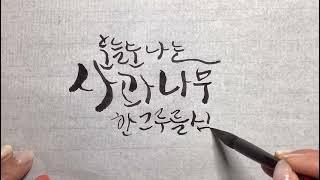 오늘도 나는
사과나무
한 그루를 심